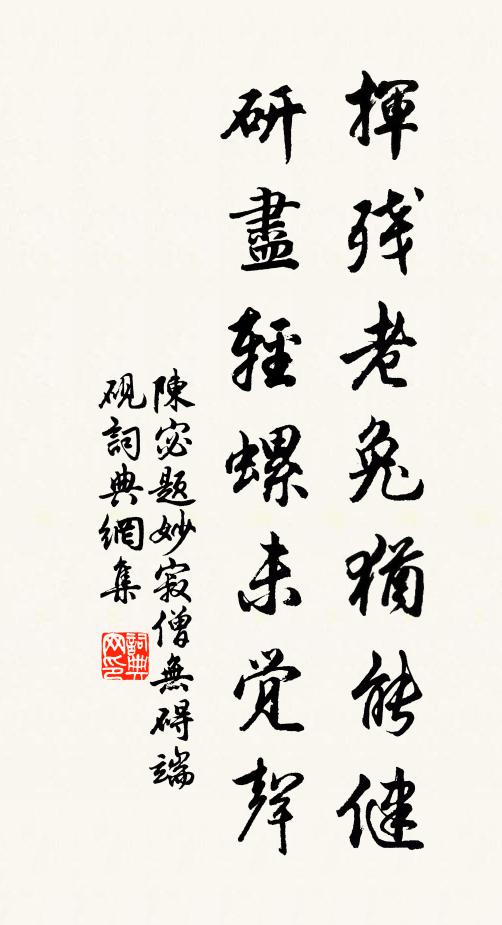 揮残老兔猶能健
研盡輕螺未覚聲
陳宓題妙寂僧無碍端
硯詞典網集
詞典
网印